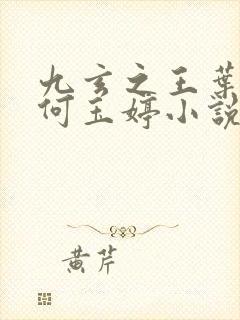 九玄之王葉
何玉婷小說
黃芹